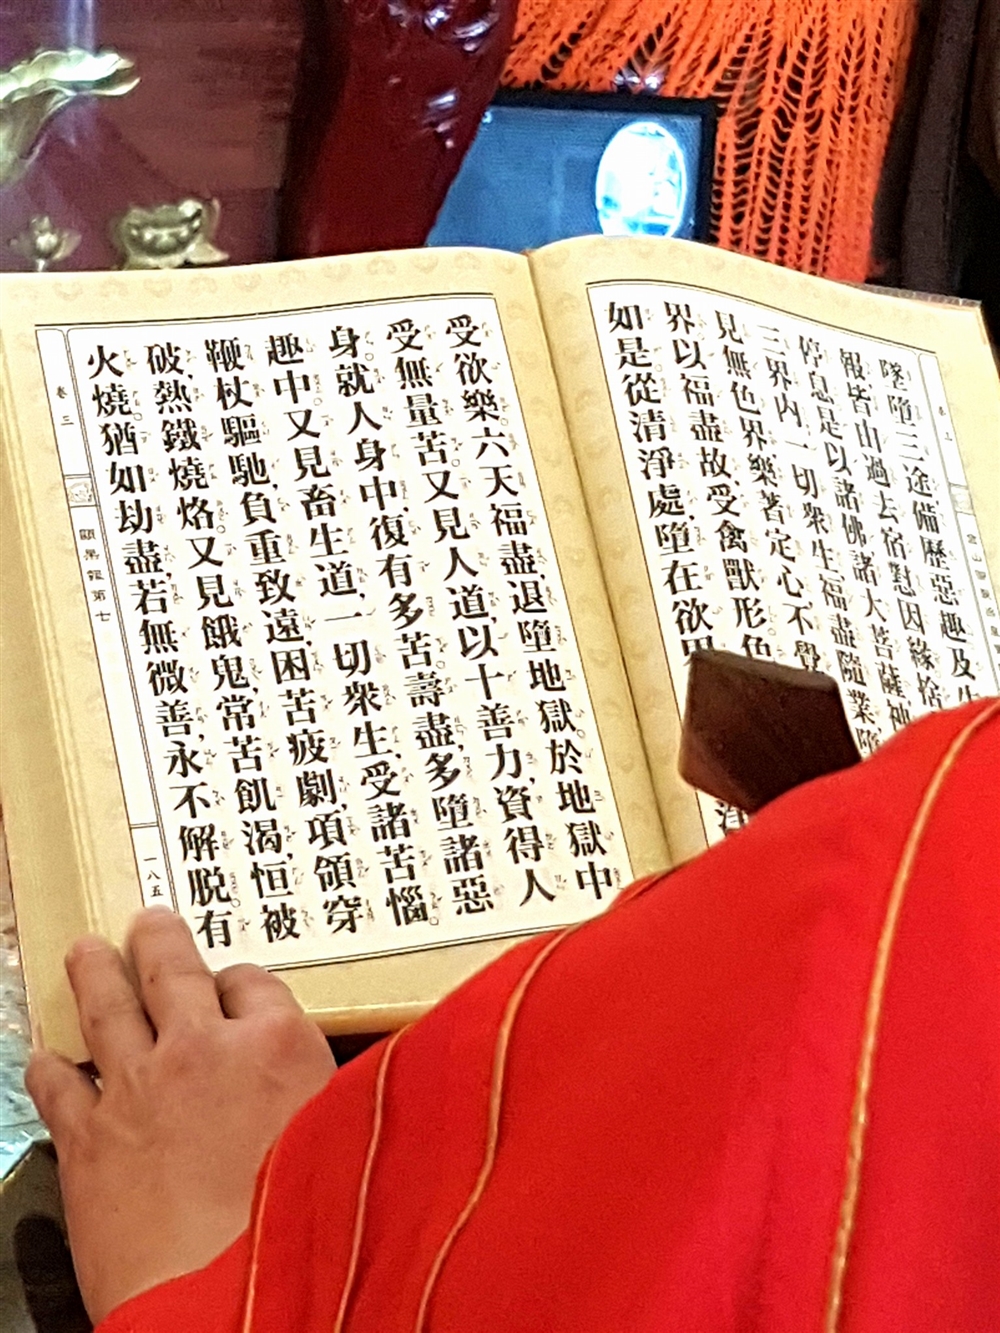 墜墮三途備歷惡趣及
報皆由過去宿對因緣
停息是以諸佛諸大菩薩神
三界內一切眾生福盡隨業
見無色界樂著定心不覺
界以福盡故受禽獸形色
如是從清淨處墮在欲界
受欲樂六天福盡退墮地獄於地獄中
受無量苦又見人道以十善力資得人
身就人身中復有多苦壽盡多墮諸惡
趣中又見畜生道一切眾生受諸苦惱
鞭杖驅馳負重致遠困苦疲劇項領穿
破熱鐵燒烙又見餓鬼常苦飢渴恒被
火燒猶如劫盡若無微善永不解脫有
卷三
顯果報第七
一八五